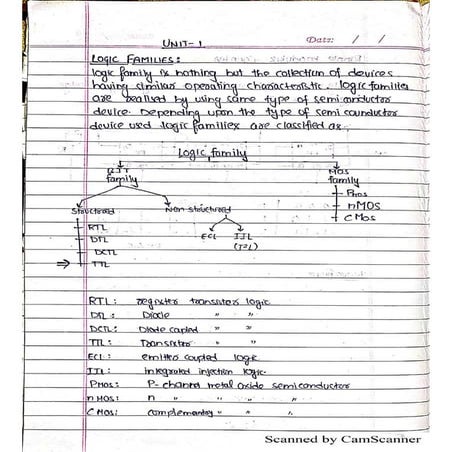 UNIT-1
Date: / /
LOGIC FAMILIES:
logic family is nothing but the collection of devices
having similar operating characteristic. logic families
are realised by using same type of semiconductor
device. Depending upon the type of semi counductor
device used logic families are classified as.
Logic family
BJT family
MOS family
Pmos
nMOS
CMos
Structured
Non structured
RTL
DTL
DCTL
⇒ TTL
ECL
IIL
(I²L)
RTL: register transistors logic
DTL: Diode " "
DCTL: Diode coupled " "
TTL: Transistor " "
ECL: emitter coupled logic
IIL: Integrated injection logic.
PMOS: P-channel metal oxide semiconductor
n MOS: n " " "
C MOS: complementry " " "
Scanned by CamScanner